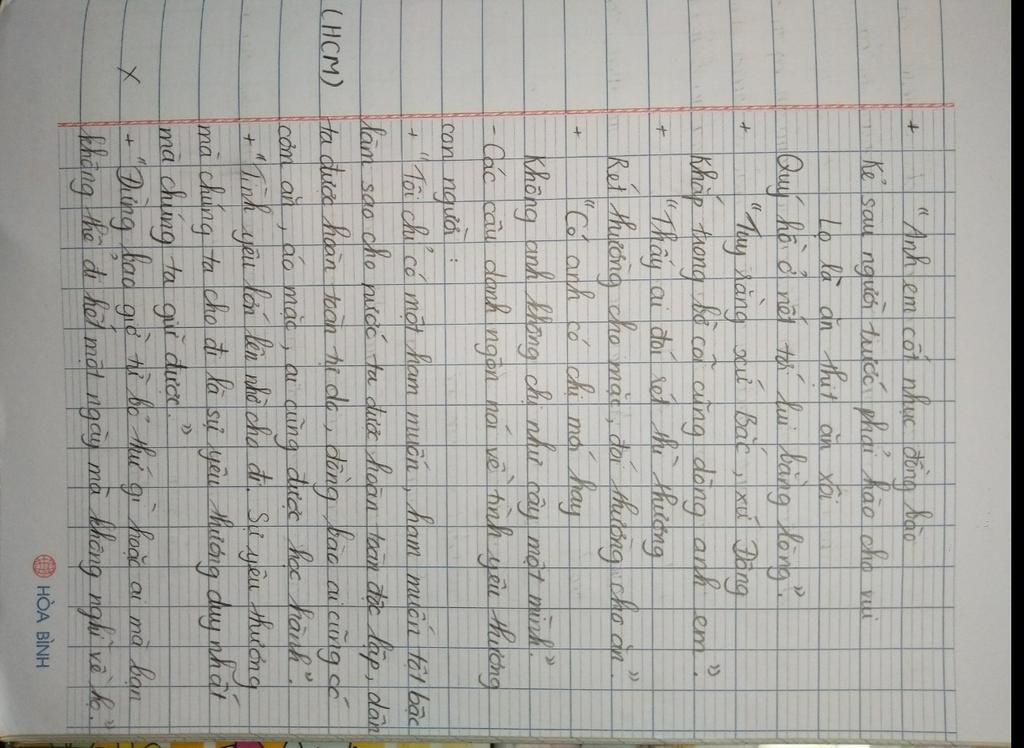 + "Anh em cốt nhục đồng bào
Kẻ sau người trước phải hào cho vui
Lọ là ăn thịt ăn xôi
Quý hồ ở nết tới lui bằng lòng".
+ "Tuy rằng xứ Bắc, xứ Đông
Khắp trong bờ cõi cũng dòng anh em".
+ "Thấy ai đói rét thì thương
Rét thường cho mặc, đói thường cho ăn."
+ "Có anh có chị mới hay
Không anh không chị như cây một mình."
- Các câu danh ngôn nói về tình yêu thương
con người:
+ "Tôi chỉ có một ham muốn, ham muốn tột bậc
làm sao cho nước ta được hoàn toàn độc lập, dân
(HCM) ta được hoàn toàn tự do, đồng bào ai cũng có
cơm ăn, áo mặc, ai cũng được học hành".
+ "Tình yêu lớn lên nhờ cho đi. Sự yêu thương
mà chúng ta cho đi là sự yêu thương duy nhất
mà chúng ta giữ được."
x + "Đừng bao giờ từ bỏ thứ gì hoặc ai mà bạn
không thể đi hết một ngày mà không nghĩ về họ."
HÒA BÌNH